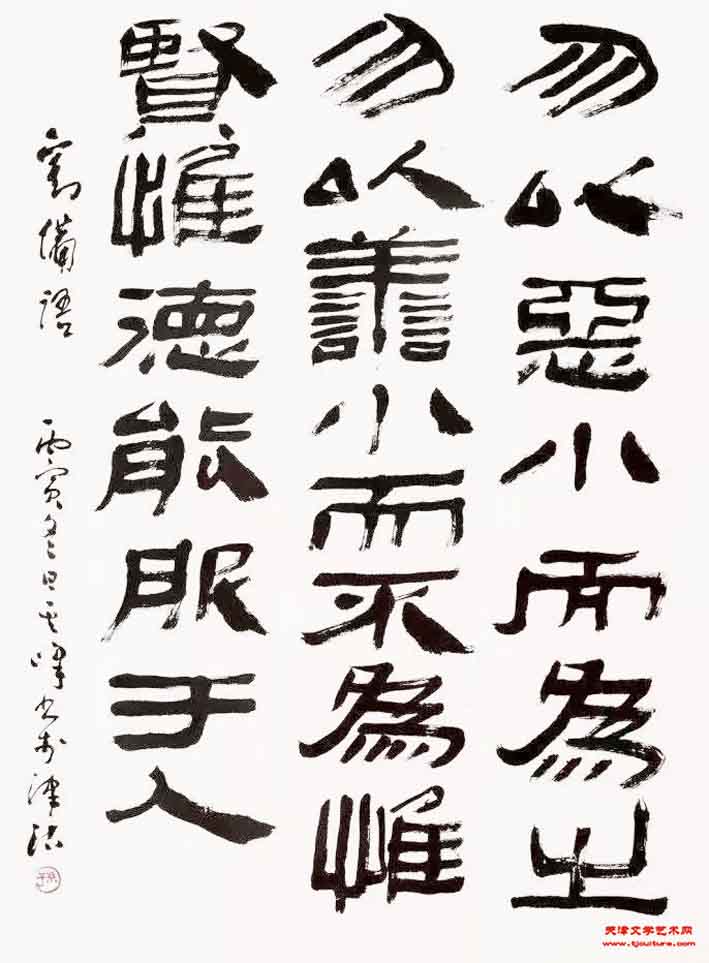 勿以惡小而為之
勿以譱小而不為惟
賢惟德能服于人
劉備語
丙寅冬日其峰书於津沽
天津文学艺术网
www.tjculture.com